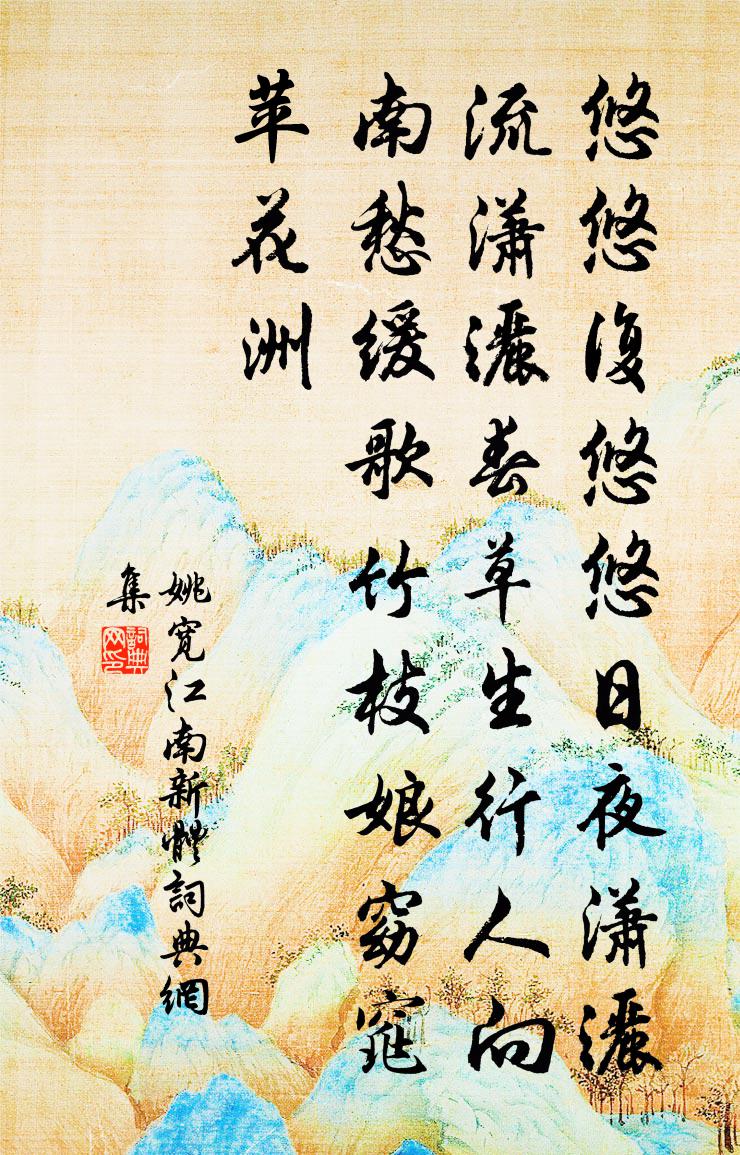 悠悠復悠悠日夜瀟灑
流瀟灑春草生行人向
南愁緩歌竹枝娘窈窕
苹花洲
姚寬江南新體詞典網
集
詞典網印